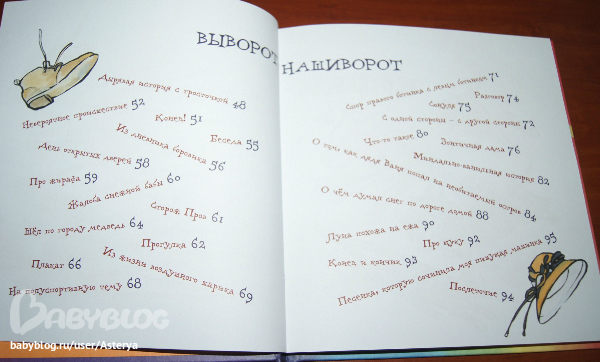 ВЫВОРОТ
НАШИВОРОТ
Дырявая история с тросточкой 48
Невероятное происшествие 52
Конец! 51
Беседа 55
Из дневника боровика 56
День открытых дверей 58
Про жирафа 59
Жалоба снежной бабы 60
Сторож Пров 61
Шёл по городу медведь 64
Прогулка 62
Плакат 66
Из жизни воздушного шарика 69
На полуспортивную тему 68
Спор правого ботинка с левым ботинком 71
Разговор 74
Сосуля 75
С одной стороны – с другой стороны 72
Что-то такое 80
Зонтичная дама 76
Миндально-ванильная история 82
О том, как дядя Ваня попал на необитаемый остров 84
О чём думал снег по дороге домой 88
Луна похожа на ежа 90
Про щуку 92
Конец и кончик 93
Песенка, которую сочинила моя пишущая машинка 95
Послесловие 94
BABYBLOG
babyblog.ru/user/Asterya